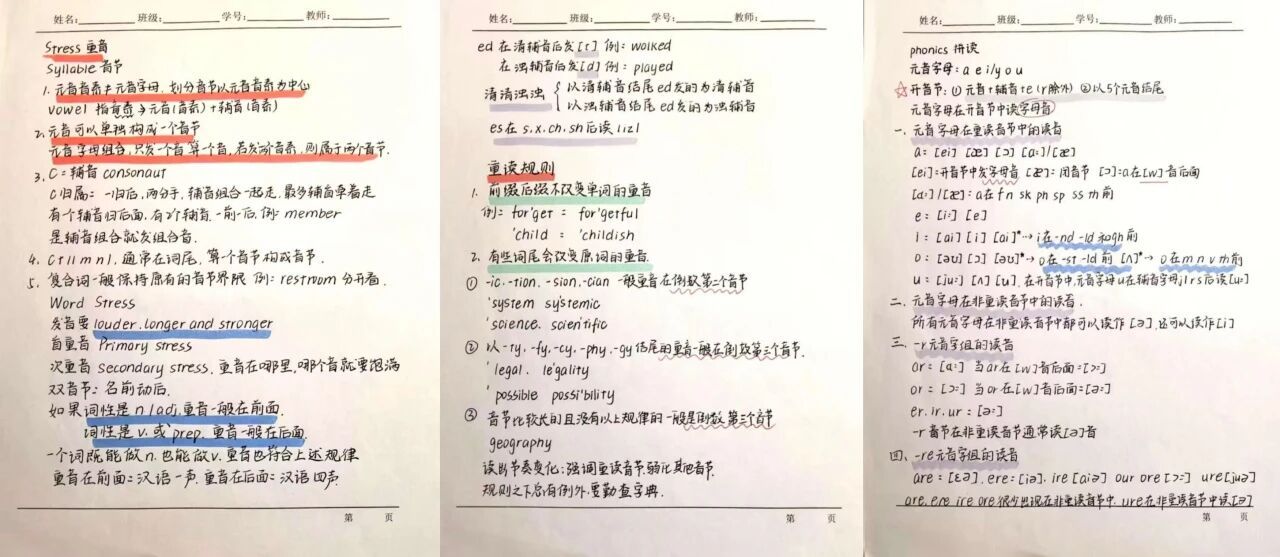 姓名: 班级: 学号: 教师:
Stress 重音
Syllable 音节
1. 元音音素≠元音字母, 划分音节以元音音素为中心
vowel 指音素→元音(音素)+辅音(音素)
2. 元音可以单独构成一个音节
元音字母组合, 只发一个音算一个音, 若发两个音素, 则属于两个音节.
3. C=辅音 consonaut
C归属: 一归后, 两分手, 辅音组合一起走, 最多辅音靠着走
有个辅音归后面, 有2个辅音, 一前一后, 例: member
是辅音组合就发组合音.
4. C+l l m n l, 通常在词尾, 算个音节构成音节.
5. 复合词一般保持原有的音节界限 例: restroom 分开看.
Word Stress
发音要 louder, longer and stronger
首重音 Primary stress
次重音 secondary stress, 重音在哪里, 哪个音就要饱满
双音节: 名前动后.
如果词性是 n / adj. 重音一般在前面.
词性是 v. 或 prep. 重音一般在后面.
一个词既能做n. 也能做v. 重音也符合上述规律
重音在前面=汉语一声. 重音在后面=汉语四声.
第 页
姓名: 班级: 学号: 教师:
ed 在清辅音后发[t] 例: walked
在浊辅音后发[d] 例: played
清清浊浊 { 以清辅音结尾ed发的为清辅音
以浊辅音结尾ed发的为浊辅音
es在s. x. ch. sh后读 /iz/
重读规则
1. 前缀后缀不改变单词的重音
例: for'get = for'getful
'child = 'childish
2. 有些词尾会改变原词的重音.
① -ic. -tion. -sion. -cian 一般重音在倒数第二个音节
'system sys'temic
'science. scien'tific
② 以-ty. -fy. -cy. -phy. -gy 结尾的重音一般在倒数第三个音节.
'legal. le'gality
'possible possi'bility
③ 音节比较长的且没有以上规律的一般是倒数第三个音节
geography
读出节奏变化: 强调重读音节弱化其他音节.
规则之下总有例外. 要勤查字典.
第 页
姓名: 班级: 学号: 教师:
phonics 拼读
元音字母: a e i/y o u
☆开音节: ①元音+辅音+e (r除外) ②以5个元音结尾
元音字母在开音节中读字母音
一. 元音字母在重读音节中的读音
a: [ei] [æ] [ɔ] [a:]/[æ]
[ei]: 开音节中发字母音 [æ]: 闭音节 [ɔ]: a在[w]音后面
[a:]/[æ]: a在 f n sk ph sp ss th前
e: [i:] [e]
i: [ai] [i] [ai]*⇢ i在-nd -ld 和gh前
o: [əʊ] [ɔ] [əʊ]*→ o在-st -ld前 [ʌ]*→ o在m n v th前
u: [ju:] [ʌ] [u], 在开音节中, 元音字母u在辅音字母j l r s后读[u:]
二. 元音字母在非重读音节中的读音.
所有元音字母在非重读音节中都可以读作 [ə], 还可以读作[i]
三. -r元音字组的读音
ar= [a:] 当ar在[w]音后面=[ɔ:]
or= [ɔ:] 当or在[w]音后面=[ə:]
er. ir. ur= [ə:]
-r音节在非重读音节通常读[ə]音
四. -re元音字组的读音
are= [ɛə]. ere= [iə]. ire [aiə] our ore [ɔ:] ure[juə]
are. ere ire ore很少出现在非重读音节中. ure在非重读音节中读[ə]
第 页